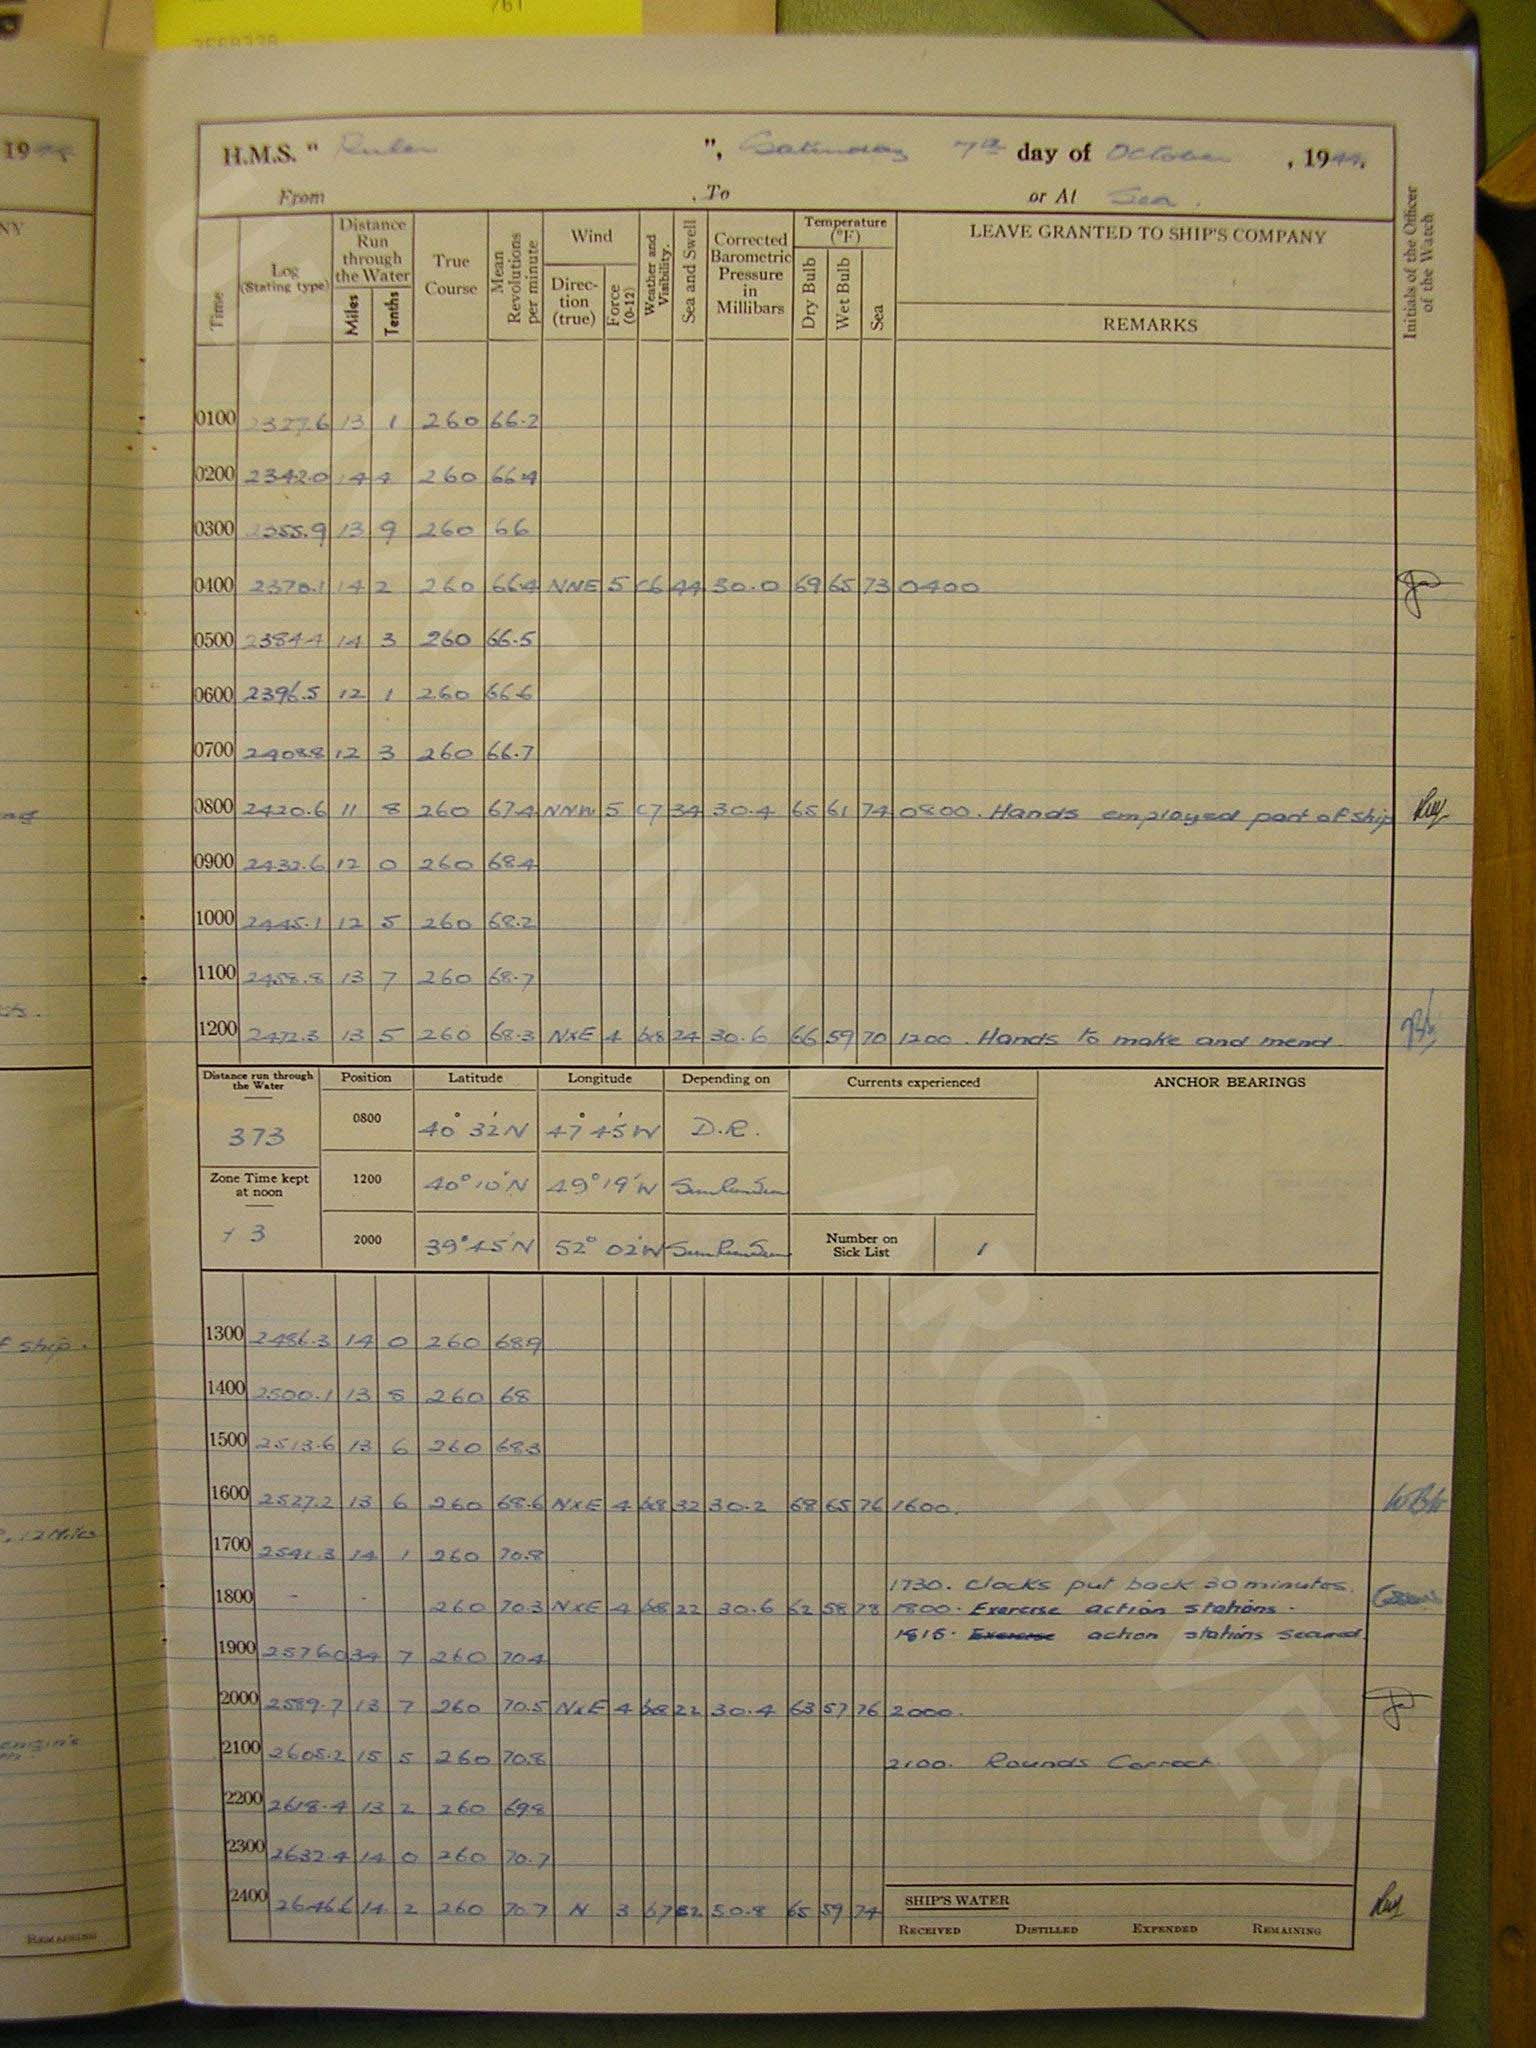 761
H.M.S. " Ruler ", Saturday 7th day of October, 1944.
From , To or At Sea.
Time
Log (Stating type)
Distance Run through the Water
Miles
Tenths
True Course
Mean Revolutions per minute
Wind
Direction (true)
Force (0-12)
Weather and Visibility.
Sea and Swell
Corrected Barometric Pressure in Millibars
Temperature (°F)
Dry Bulb
Wet Bulb
Sea
LEAVE GRANTED TO SHIP'S COMPANY
REMARKS
Initials of the Officer of the Watch
0100 2327.6 13 1 260 66.2
0200 2342.0 14 4 260 66.4
0300 2355.9 13 9 260 66
0400 2370.1 14 2 260 66.4 NNE 5 c6 44 30.0 69 65 73 0400
0500 2384.4 14 3 260 66.5
0600 2396.5 12 1 260 66.6
0700 2408.8 12 3 260 66.7
0800 2420.6 11 8 260 67.4 NNW 5 c7 34 30.4 65 61 74 0800. Hands employed part of ship
0900 2432.6 12 0 260 68.4
1000 2445.1 12 5 260 68.2
1100 2458.8 13 7 260 68.7
1200 2472.3 13 5 260 68.3 NxE 4 bc8 24 30.6 66 59 70 1200. Hands to make and mend
Distance run through the Water
373
Zone Time kept at noon
+ 3
Position Latitude Longitude Depending on
0800 40° 32'N 47° 45'W D.R.
1200 40° 10'N 49° 19'W Sun Run Sun
2000 39° 45'N 52° 02'W Sun Run Sun
Currents experienced
Number on Sick List 1
ANCHOR BEARINGS
1300 2486.3 14 0 260 68.9
1400 2500.1 13 8 260 68
1500 2513.6 13 6 260 68.3
1600 2527.2 13 6 260 68.6 NxE 4 bc8 32 30.2 68 65 76 1600.
1700 2541.3 14 1 260 70.8
1730. Clocks put back 30 minutes.
1800 - - 260 70.3 NxE 4 bc8 22 30.6 62 58 78 1800. Exercise action stations.
1815. Exercise action stations secured.
1900 2576.0 34 7 260 70.4
2000 2589.7 13 7 260 70.5 NxE 4 bc8 22 30.4 63 57 76 2000.
2100 2605.2 15 5 260 70.8 2100. Rounds Correct.
2200 2618.4 13 2 260 69.8
2300 2632.4 14 0 260 70.7
2400 2646.6 14 2 260 70.7 N 3 30.8 65 59 74
SHIP'S WATER
RECEIVED DISTILLED EXPENDED REMAINING
NATIONAL ARCHIVES